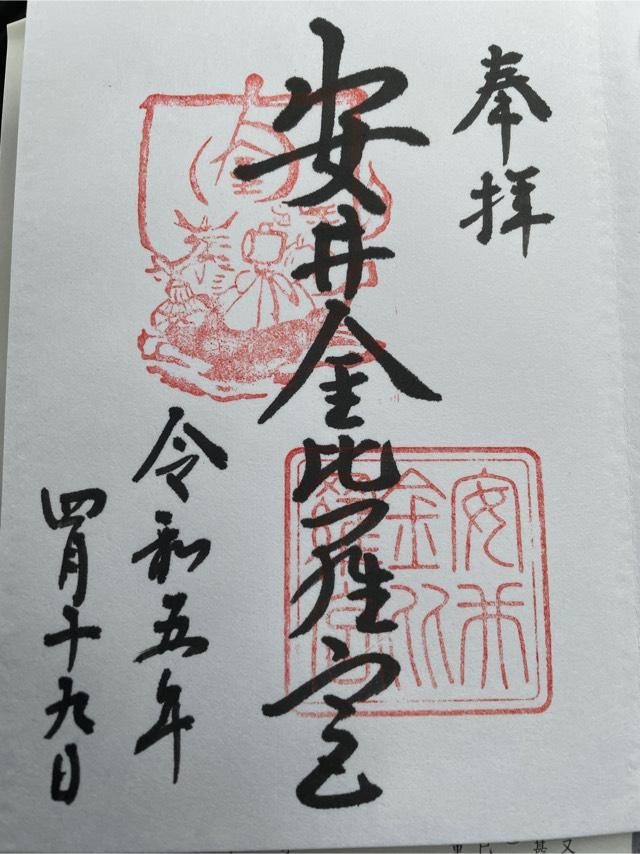 奉拝
安井金比羅宮
令和五年
四月十九日
安井
金比
羅宮